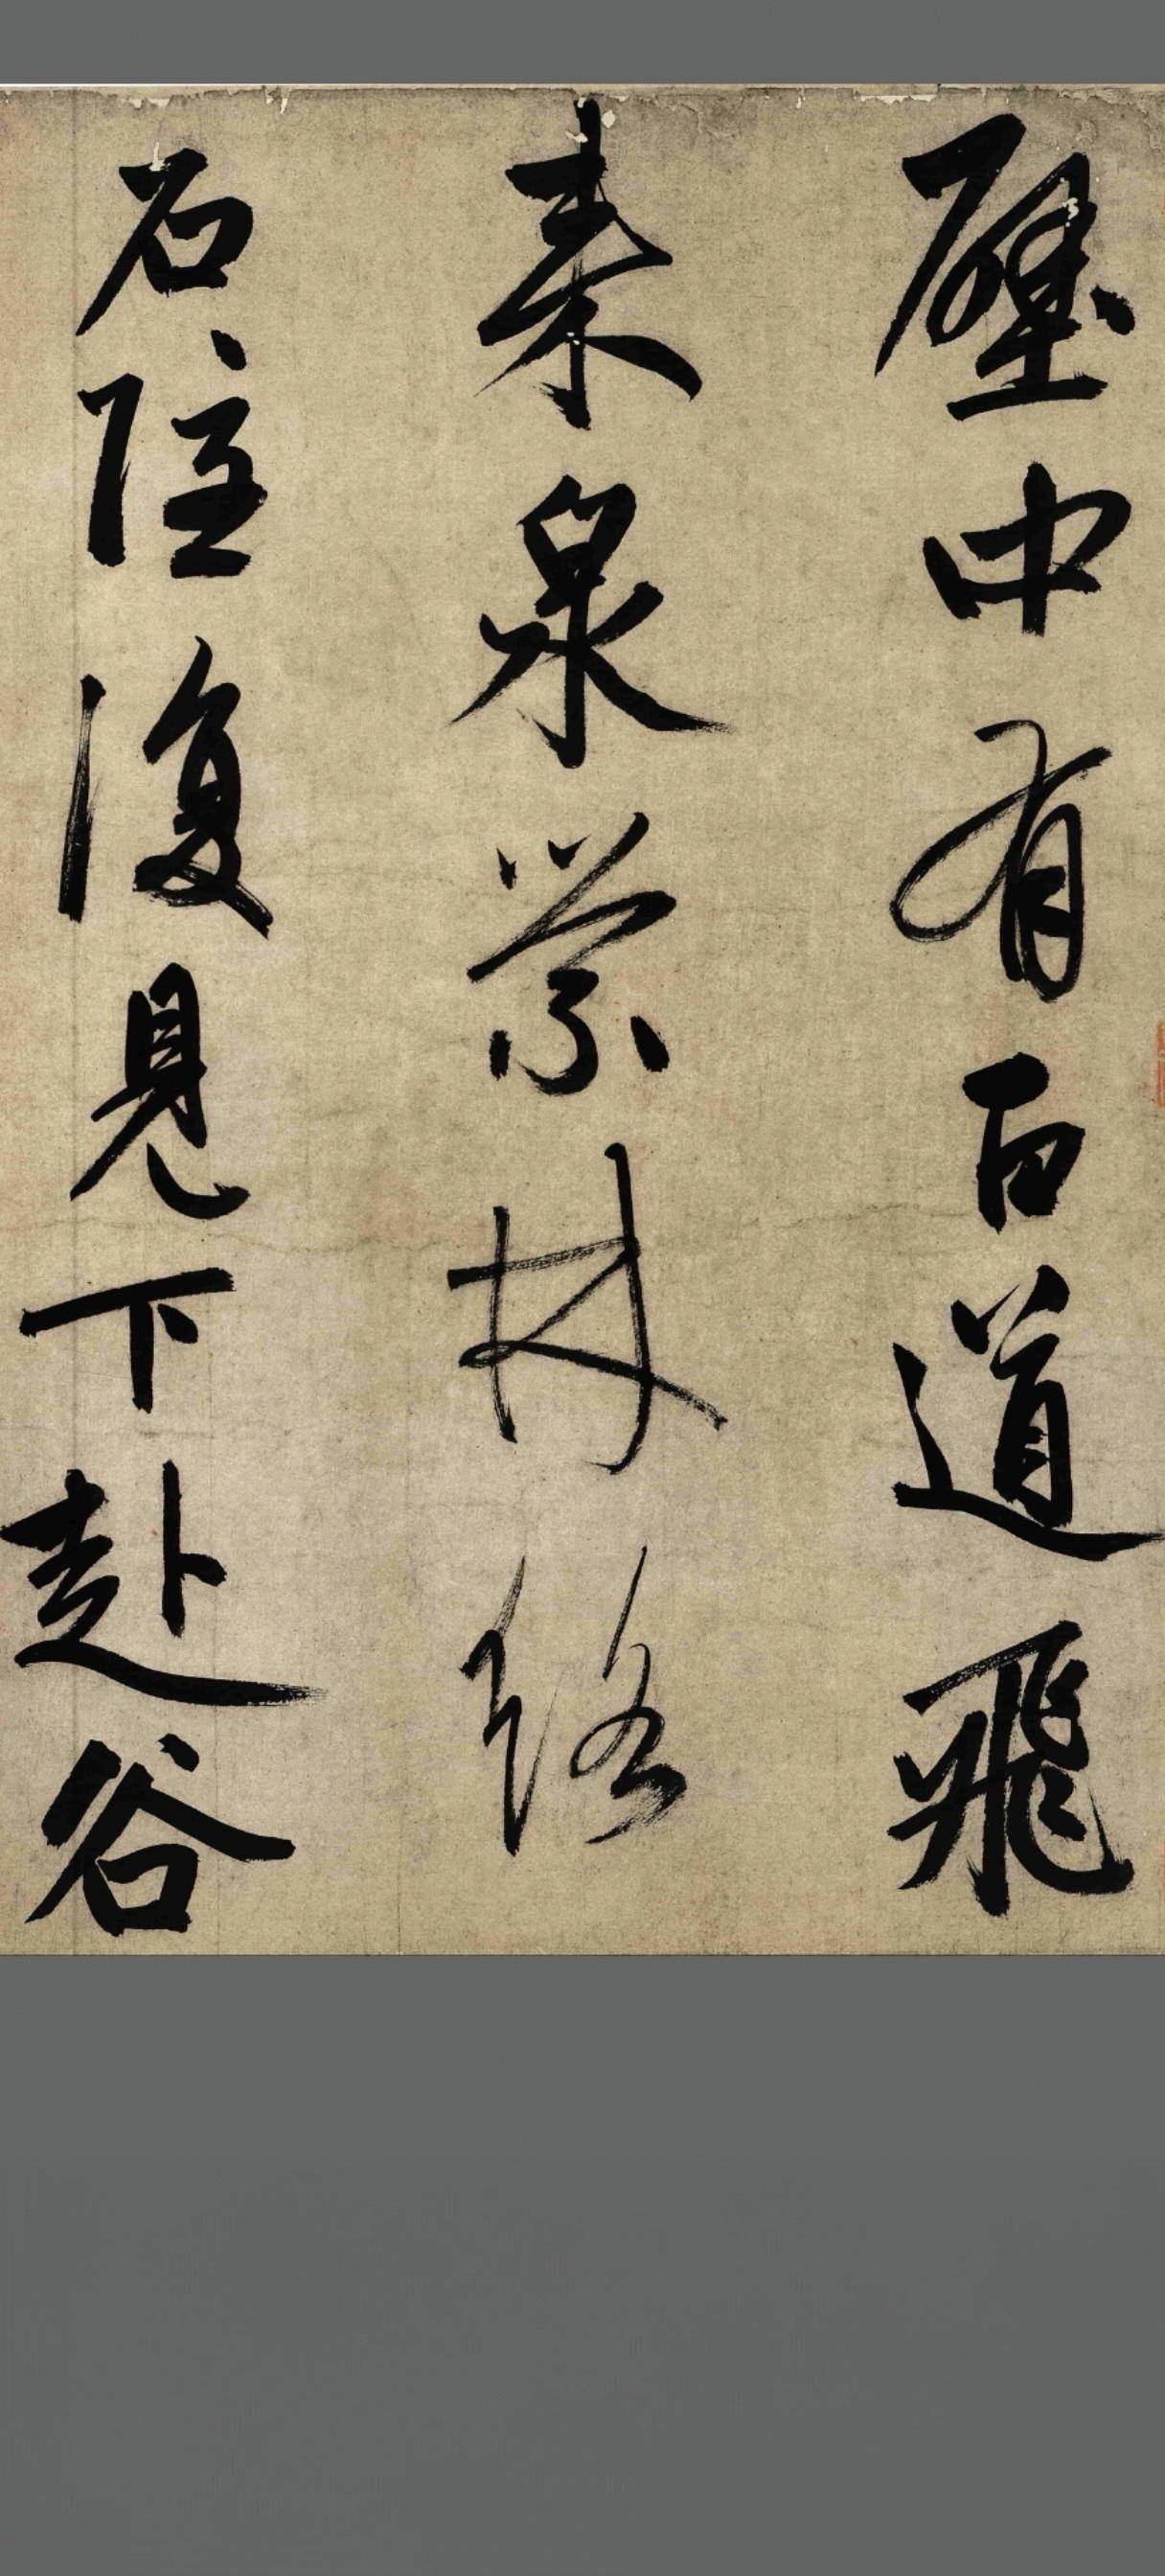 壁中有百道飛
來泉縈林絡
石隱復見下赴谷